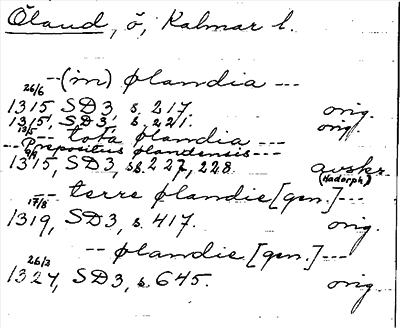 Öland, ö, Kalmar l.
-- (in) ølandia ---
26/6
1315 SD3 s. 217. orig.
1315, SD3, s. 221. orig.
13/5 -- tota ølandia ---
-- Prepositus ølandensis ---
1315, SD3, ss. 227, 228. avskr. (Hadorph)
-- terre ølandie [gen.] ---
17/8
1319, SD3, s. 417. orig.
-- ølandie [gen.] ---
26/2
1327, SD3, s. 645. orig.